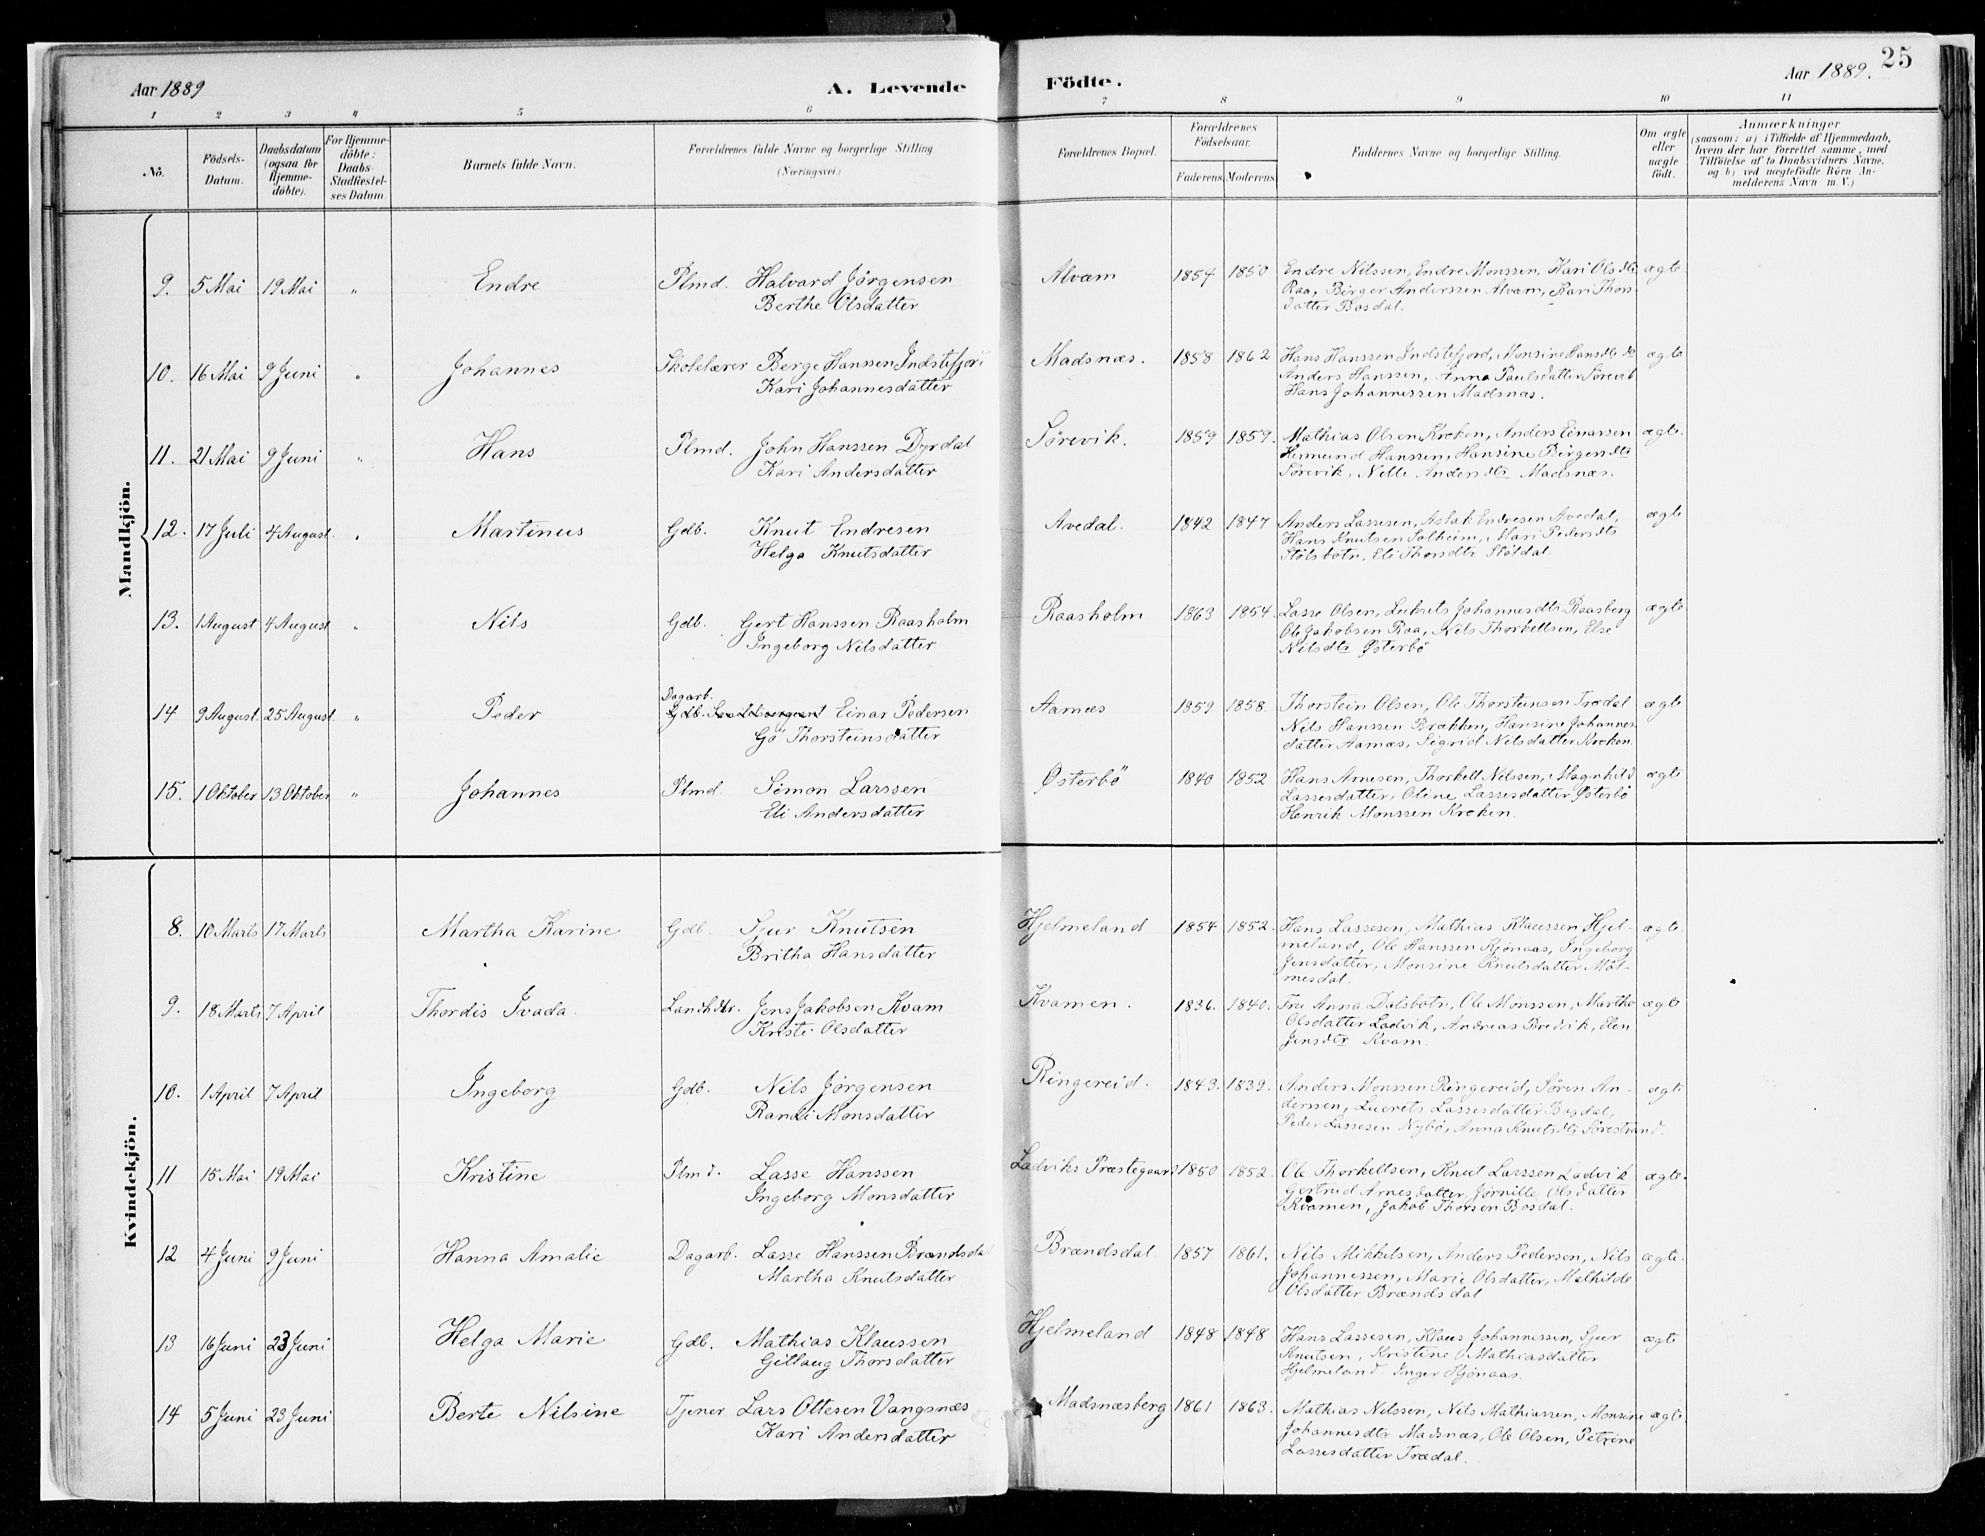 Aar 1889
A. Levende
Födte.
Aar 1889.
25
1 2 3 4 5 6 7 8 9 10 11
No.
Födsels-
Datum.
Daabsdatum
(ogsaa for
Hjemme-
döbte).
For Hjemme-
döbte:
Daabs-
Stadfestel-
ses Datum.
Barnets fulde Navn.
Forældrenes fulde Navne og borgerlige Stilling
(Næringsvei.)
Forældrenes Bopæl.
Forældrenes
Födselsaar.
Faderens. Moderens.
Faddernes Navne og borgerlige Stilling.
Om ægte
eller
uægte
födt.
Anmærkninger
(saasom: a) i Tilfælde af Hjemmedaab,
hvem der har forrettet samme, med
Tilföielse af to Daabsvidners Navne.
og b) ved uægtefödte Börn An-
melderens Navn m. V.)
Mandkjön.
9. 5 Mai 19 Mai " Endre Plmd. Halvard Jørgensen
Berthe Olsdatter
Alvæm 1854 1850 Endre Nilssen, Endre Monssen, Kari Olsdtr ægte
Raa, Birger Anderssen Alvæm, Kari Thors-
datter Bosdal.
10. 16 Mai 9 Juni " Johannes Skolelærer Berge Hanssen Indstefjor
Kari Johannesdatter
Madsnæs. 1858 1862 Hans Hanssen Indstefjord, Monsine Hansdtr do ægte
Anders Hanssen, Anna Paulsdatter Sørevik
Hans Johannessen Madsnæs.
11. 21 Mai 9 Juni " Hans Plmd. John Hanssen Dyrdal
Kari Andersdatter
Sørevik. 1859 1859. Mathias Olsen Kroken, Anders Einarsen ægte.
Hermund Hanssen, Hansine Birgersdtr
Sørevik, Nille Andersdtr Madsnæs.
12. 17 Juli 4 August " Martinus Gdb. Knut Endresen
Helga Knutsdatter
Avedal. 1842 1847 Anders Lassesen, Aslak Endresen Avedal, ægte
Hans Knutsen Solheim, Mari Pedersdtr
Stølsbotn, Eli Thorsdtr Støldal.
13. 1 August 4 August " Nils Gdb. Gert Hanssen Raasholm
Ingeborg Nilsdatter
Raasholm 1863 1854. Lasse Olsen, Lukrets Johannesdtr Raasberg ægte
Ole Jakobsen Raa, Nils Thorkellsen, Else
Nilsdtr Østerbö
14 9 August. 25 August. " Peder Dagarb.
Gdb. Einar Pedersen
Gö Thorsteinsdatter
Aarnæs 1859 1858. Thorstein Olsen, Ole Thorsteinsen Trædal ægte
Nils Hanssen Brækken, Hansine Johannes
datter Aarnæs, Sigrid Nilsdatter Kroken
15. 1 Oktober 13 Oktober " Johannes Plmd. Simon Larssen
Eli Andersdatter
Østerbö 1840 1852 Hans Arnesen, Thorkell Nilssen, Magnhild ægte
Lassesdatter, Oline Lassesdatter Østerbö
Henrik Monssen Kroken.
Kvindekjön.
8. 10 Marts 17 Marts Martha Karine Gdb. Sjur Knutsen
Britha Hansdatter
Hjelmeland 1854 1852. Hans Lassesen, Mathias Klaussen Hjel- ægte.
meland, Ole Hanssen Kjønaas, Ingeborg
Jensdatter, Monsine Knutsdatter Mat-
nesdal.
9. 18 Marts 7 April Thordis Ivada. Landhdlr. Jens Jakobsen Kvam
Kristi Olsdatter
Kvamen. 1836. 1840. Fru Anna Dalsbotn, Ole Monssen, Martha ægte
Olsdatter Ladvik, Andreas Bredvik, Elen
Jensdtr Kvam.
10. 1 April 7 April Ingeborg Gdb. Nils Jørgensen
Randi Monsdatter
Ringereid. 1843. 1839. Anders Monssen Ringereid, Søren An- ægte
derssen, Lucrets Lassesdatter Bogdal,
Peder Lassesen Nybö, Anna Knutsdtr Sørestrand.
11 15 Mai 19 Mai Kristine Plmd. Lasse Hanssen
Ingeborg Monsdatter
Ladviks Præstegaard 1850 1852. Ole Thorkellsen, Knut Larssen Ladvik ægte.
Gertrud Arnesdatter, Jørnille Olsdatter
Kvamen, Jakob Thorsen Bosdal.
12 4 Juni 9 Juni Hanna Amalie Dagarb. Lasse Hanssen Brændsdal
Martha Knutsdatter
Brændsdal 1857 1861. Nils Mikkelsen, Anders Pedersen, Nils ægte.
Johannessen, Marie Olsdatter, Mathilde
Olsdatter Brændsdal
13 16 Juni 23 Juni Helga Marie Gdb. Mathias Klaussen
Gitlaug Thorsdatter
Hjelmeland 1848 1848 Hans Lassesen, Klaus Johannessen, Sjur ægte
Knutsen, Kristine Mathiasdatter
Hjelmeland. Inger Kjønaas.
14 5 Juni 23 Juni Berte Nilsine Tjener Lars Ottesen Vangsnæs
Kari Andersdatter
Madsnæsberg 1861 1863. Mathias Nilssen, Nils Mathiassen, Monsine ægte.
Johannesdtr Madsnæs, Ole Olsen, Petrine
Lassesdatter Trædal.